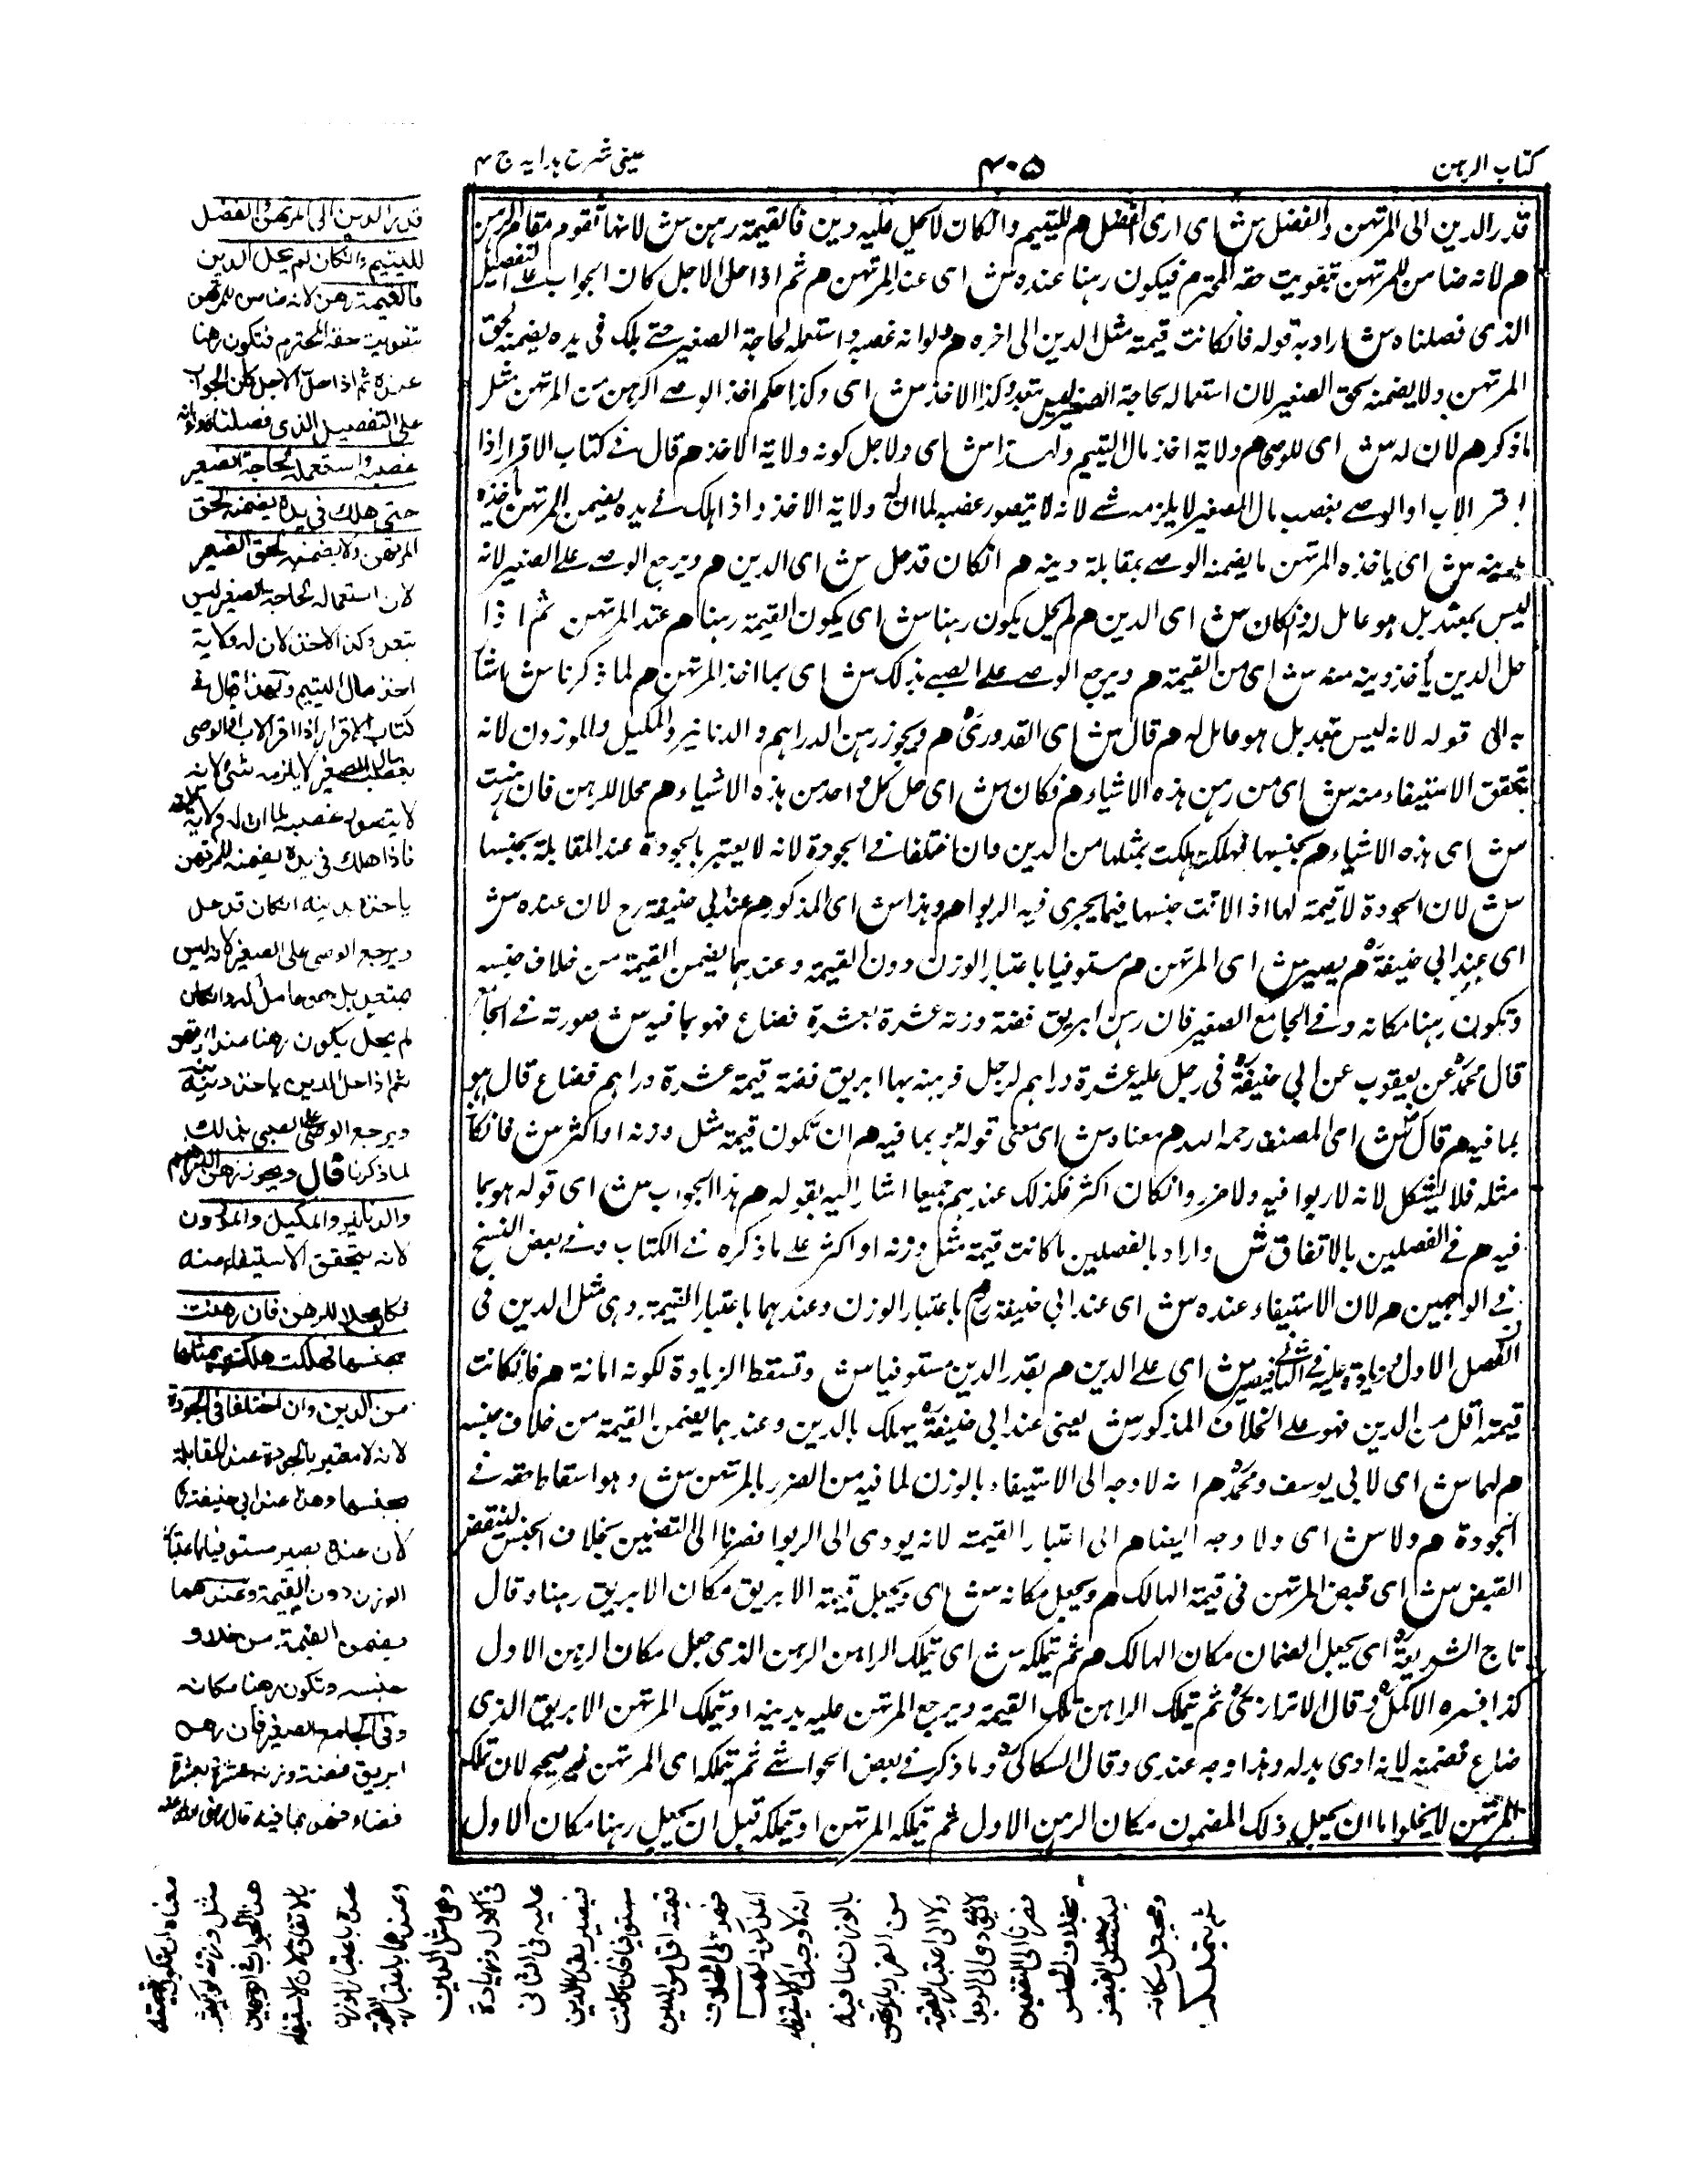 كتاب الرهن
۴۰۵
عینی شرح ہدایہ ج ۴
قدر الدين الى المرتهن والفضل ش اى ارى الفضل م لليتيم وان كان لا يحل عليه دين فالقيمة رهن ش لانها تقوم مقام الرهن
م لانه ضامن للمرتهن بتفويت حقه المحترم فيكون رهنا عنده ش اى عند المرتهن م ثم اذا حل الاجل كان الجواب على التفصيل
الذى فصلناه ش اراد به قوله فان كانت قيمته مثل الدين الى اخره م ولو انه غصبه واستعمله لحاجة الصغير حتى هلك فى يده يضمنه لحق
المرتهن ولا يضمنه لحق الصغير لان استعماله لحاجة الصغير ليس بتعد وكذا الاخذ ش اى وكذا حكم اخذ الوصى الرهن من المرتهن مثل
ما ذكر م لان له ش اى للوصى م ولاية اخذ مال اليتيم ولهذا ش اى ولاجل كونه ولاية الاخذ م قال فى كتاب الاقرار اذا
اقر الاب او الوصى بغصب مال الصغير لا يلزمه شئ لانه لا يتصور غصبه لما ان له ولاية الاخذ واذا هلك فى يده يضمن للمرتهن يأخذه
بدينه ش اى ياخذه المرتهن ما يضمنه الوصى بمقابلة دينه م ان كان قد حل ش اى الدين م ويرجع الوصى على الصغير لانه
ليس بمتعد بل هو عامل له وان كان ش اى الدين م لم يحل يكون رهنا ش اى يكون القيمة رهنا م عند المرتهن ثم اذا
حل الدين يأخذ دينه منه ش اى من القيمة م ويرجع الوصى على الصبى بذلك ش اى بما اخذ المرتهن م لما ذكرنا ش اشار
به الى قوله لانه ليس بمتعد بل هو عامل له م قال ش اى القدورى م ويجوز رهن الدراهم والدنانير والمكيل والموزون لانه
يتحقق الاستيفاء منه ش اى من رهن هذه الاشياء م فكان ش اى حل كل واحد من هذه الاشياء م محلا للرهن فان رهنت
ش اى هذه الاشياء م بجنسها فهلكت هلكت بمثلها من الدين وان اختلفا فى الجودة لانه لا يعتبر بالجودة عند المقابلة بجنسها
ش لان الجودة لا قيمة لها اذا لاقت جنسها فيما يجرى فيه الربوا م وهذا ش اى المذكور م عند ابى حنيفة رح لان عنده ش
اى عند ابى حنيفة م يصير ش اى المرتهن م مستوفيا باعتبار الوزن دون القيمة وعندهما يضمن القيمة من خلاف جنسه
وتكون رهنا مكانه وفى الجامع الصغير فان رهن ابريق فضة وزنه عشرة بعشرة فضاع فهو بما فيه ش صورته فى الجامع
قال محمد عن يعقوب عن ابى حنيفة فى رجل عليه عشرة دراهم لرجل فرهنه بها ابريق فضة قيمته عشرة دراهم فضاع قال هو
بما فيه م قال ش اى المصنف رحمه الله م معناه ش اى معنى قوله هو بما فيه م ان تكون قيمته مثل وزنه او اكثر ش فان كان
مثله فلا يشكل لانه لا ربوا فيه ولا ضرر وان كان اكثر فكذلك عندهم جميعا اشار اليه بقوله م هذا الجواب ش اى قوله هو بما
فيه م فى الفصلين بالاتفاق ش واراد بالفصلين ما كانت قيمته مثل وزنه او اكثر على ما ذكره فى الكتاب وفى بعض النسخ
فى الوجهين م لان الاستيفاء عنده ش اى عند ابى حنيفة رح م باعتبار الوزن وعندهما باعتبار القيمة وهى مثل الدين فى
الفصل الاول وزيادة عليه فى الثانى فيصير ش اى على الدين م بقدر الدين مستوفيا ش وتسقط الزيادة لكونه امانة م فان كانت
قيمته اقل من الدين فهو على الخلاف المذكور ش يعنى عند ابى حنيفة يهلك بالدين وعندهما يضمن القيمة من خلاف جنسه
م لهما ش اى لابى يوسف ومحمد م انه لا وجه الى الاستيفاء بالوزن لما فيه من الضرر بالمرتهن ش وهو اسقاط حقه فى
الجودة م ولا ش اى ولا وجه ايضا م الى اعتبار القيمة لانه يودى الى الربوا فصرنا الى التضمين بخلاف الجنس لينتقض
القبض ش اى قبض المرتهن فى قيمة الهالك م ويجعل مكانه ش اى ويجعل قيمة الابريق مكان الابريق رهنا وقال
تاج الشريعة اى يجعل الضمان مكان الهالك م ثم تملكه ش اى تملك الراهن الرهن الذى جعل مكان الرهن الاول
كذا فسره الاكمل وقال الاترازى ثم تملك الراهن تلك القيمة ويرجع المرتهن عليه بدينه او تملك المرتهن الابريق الذى
ضاع فضمنه لانه ادى بدله وهذا اوجه عندى وقال السكاكى وما ذكر فى بعض الحواشى ثم تملكه اى المرتهن غير صحيح لان تملكه
المرتهن لا يخلوا ما ان يجعل ذلك المضمون مكان الرهن الاول ثم تملكه المرتهن او تملكه قبل ان يجعل رهنا مكان الاول
قدر الدين الى المرتهن والفضل
لليتيم وان كان لم يحل الدين
فالقيمة رهن لانه ضامن للمرتهن
بتفويت حقه المحترم فتكون رهنا
عنده ثم اذا حل الاجل كان الجواب
على التفصيل الذى فصلناه ولو انه
غصبه واستعمله لحاجة الصغير
حتى هلك فى يده يضمنه لحق
المرتهن ولا يضمنه لحق الصغير
لان استعماله لحاجة الصغير ليس
بتعد وكذا الاخذ لان له ولاية
اخذ مال اليتيم ولهذا قال فى
كتاب الاقرار اذا اقر الاب او الوصى
بغصب مال الصغير لا يلزمه شئ لانه
لا يتصور غصبه لما ان له ولاية
فاذا هلك فى يده يضمنه للمرتهن
ياخذه بدينه ان كان قد حل
ويرجع الوصى على الصغير لانه ليس
بمتعد بل هو عامل له وان كان
لم يحل يكون رهنا عند المرتهن
ثم اذا حل الدين ياخذ دينه منه
ويرجع الوصى على الصبى بذلك
لما ذكرنا قال ويجوز رهن الدراهم
والدنانير والمكيل والموزون
لانه يتحقق الاستيفاء منه
فكان محلا للرهن فان رهنت
بجنسها فهلكت هلكت بمثلها
من الدين وان اختلفا فى الجودة
لانه لا معتبر بالجودة عند المقابلة
بجنسها وهذا عند ابى حنيفة
لان عنده يصير مستوفيا باعتبار
الوزن دون القيمة وعندهما
يضمن القيمة من خلاف
جنسه وتكون رهنا مكانه
وفى الجامع الصغير فان رهن
ابريق فضة وزنه عشرة بعشرة
فضاع فهو بما فيه قال رضى الله عنه
معناه ان تكون قيمته
مثل وزنه او اكثر
هذا الجواب فى الوجهين
بالاتفاق لان الاستيفاء
عنده باعتبار الوزن
وعندهما باعتبار القيمة
وهى مثل الدين
فى الاول وزيادة
عليه فى الثانى
فيصير بقدر الدين
مستوفيا فان كانت
قيمته اقل من الدين
فهو على الخلاف
المذكور لهما
انه لا وجه الى الاستيفاء
بالوزن لما فيه
من الضرر بالمرتهن
ولا الى اعتبار القيمة
لانه يؤدى الى الربوا
فصرنا الى التضمين
بخلاف الجنس
لينتقض القبض
ويجعل مكانه
ثم يتملكه